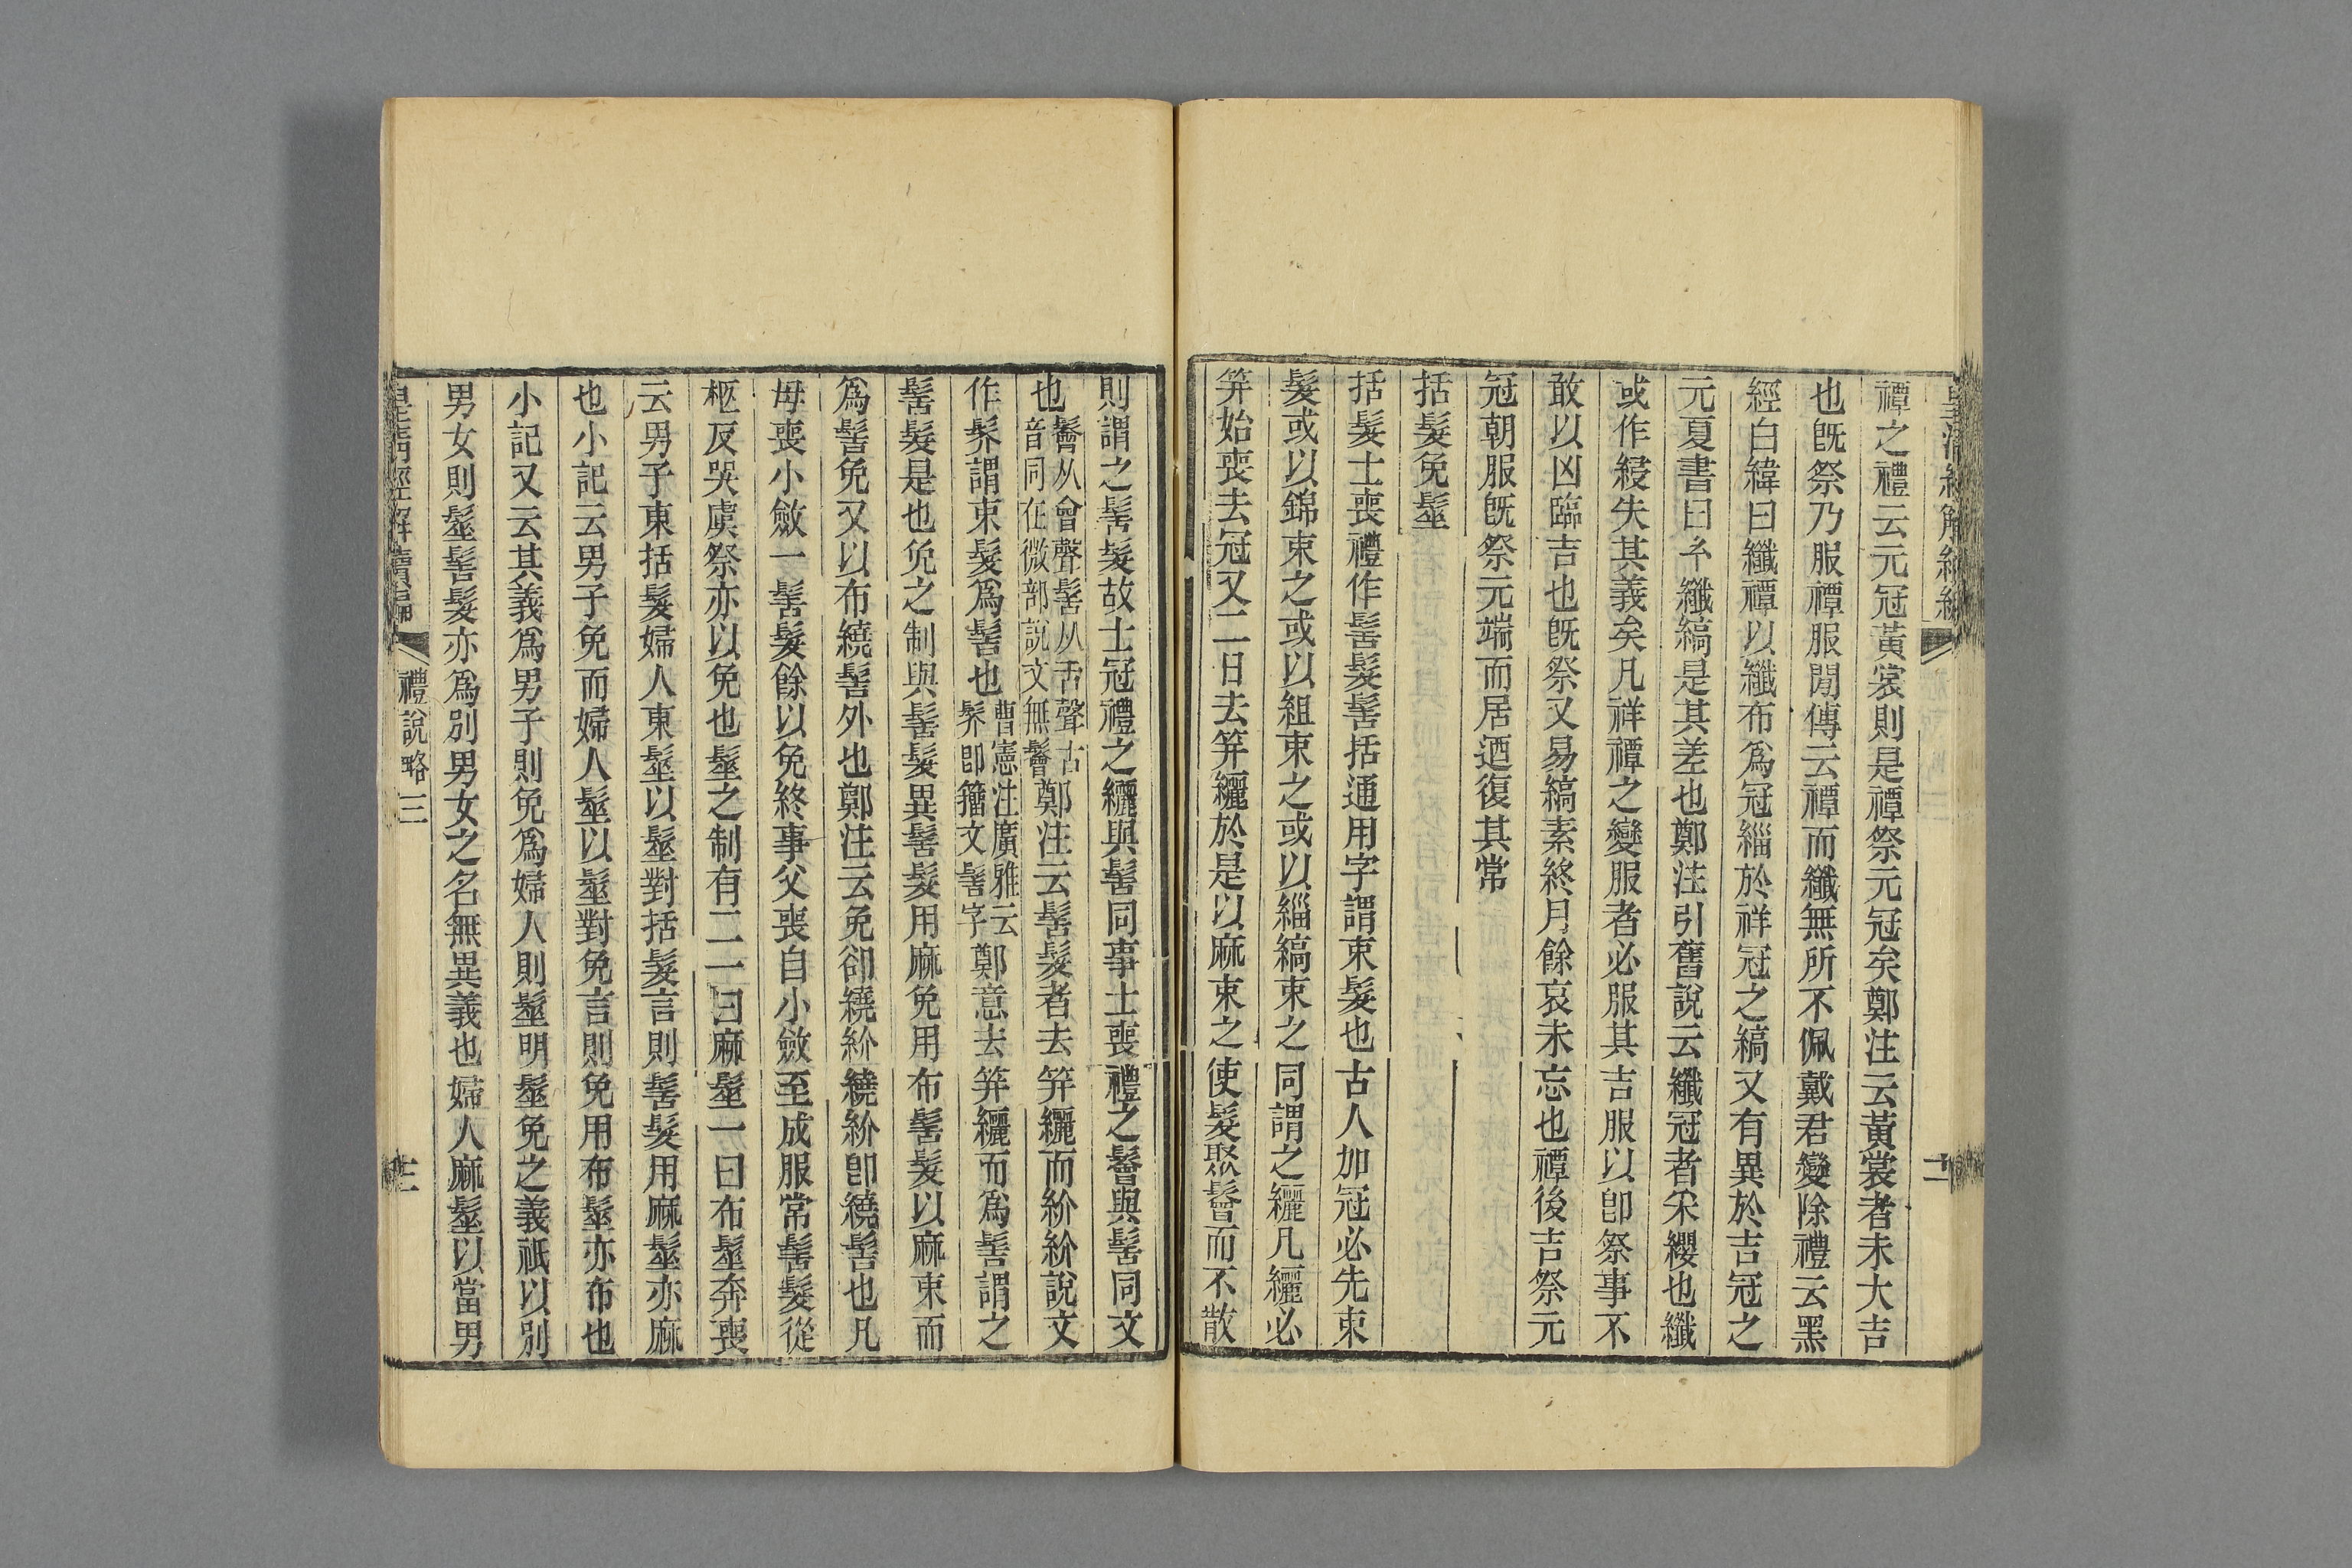 禫之禮云元冠黃裳則是禫祭元冠矣鄭注云黃裳者未大吉
也旣祭乃服禫服閒傳云禫而纖無所不佩戴君變除禮云黑
經白緯曰纖禫以纖布爲冠緇於祥冠之縞又有異於吉冠之
元夏書曰 纖縞是其差也鄭注引舊說云纖冠者采纓也纖
或作綅失其義矣凡祥禫之變服者必服其吉服以卽祭事不
敢以凶臨吉也旣祭又易縞素終月餘哀未忘也禫後吉祭元
冠朝服旣祭元端而居迺復其常
括髮免髽
括髮士喪禮作髺髮髺括通用字謂束髮也古人加冠必先束
髮或以錦束之或以組束之或以緇縞束之同謂之纚凡纚必
笄始喪去冠又二日去笄纚於是以麻束之使髮聚鬠而不散
則謂之髺髮故士冠禮之纚與髺同事士喪禮之鬠與髺同文
也鬠从會聲髺从舌聲古音同在微部說文無鬠鄭注云髺髮者去笄纚而紒紒說文
作髤謂束髮爲髻也曹憲注廣雅云髤卽籀文髻字鄭意去笄纚而爲髻謂之
髺髮是也免之制與髺髮異髺髮用麻免用布髺髮以麻束而
爲髻免又以布繞髻外也鄭注云免卻繞紒繞紒卽繞髻也凡
母喪小斂一髺髮餘以免終事父喪自小斂至成服常髺髮從
柩反哭虞祭亦以免也髽之制有二一曰麻髽一曰布髽奔喪
云男子東括髮婦人東髽以髽對括髮言則髺髮用麻髽亦麻
也小記云男子免而婦人髽以髽對免言則免用布髽亦布也
小記又云其義爲男子則免爲婦人則髽明髽免之義祇以別
男女則髽髺髮亦爲別男女之名無異義也婦人麻髽以當男
皇淸經解續編
禮說略三